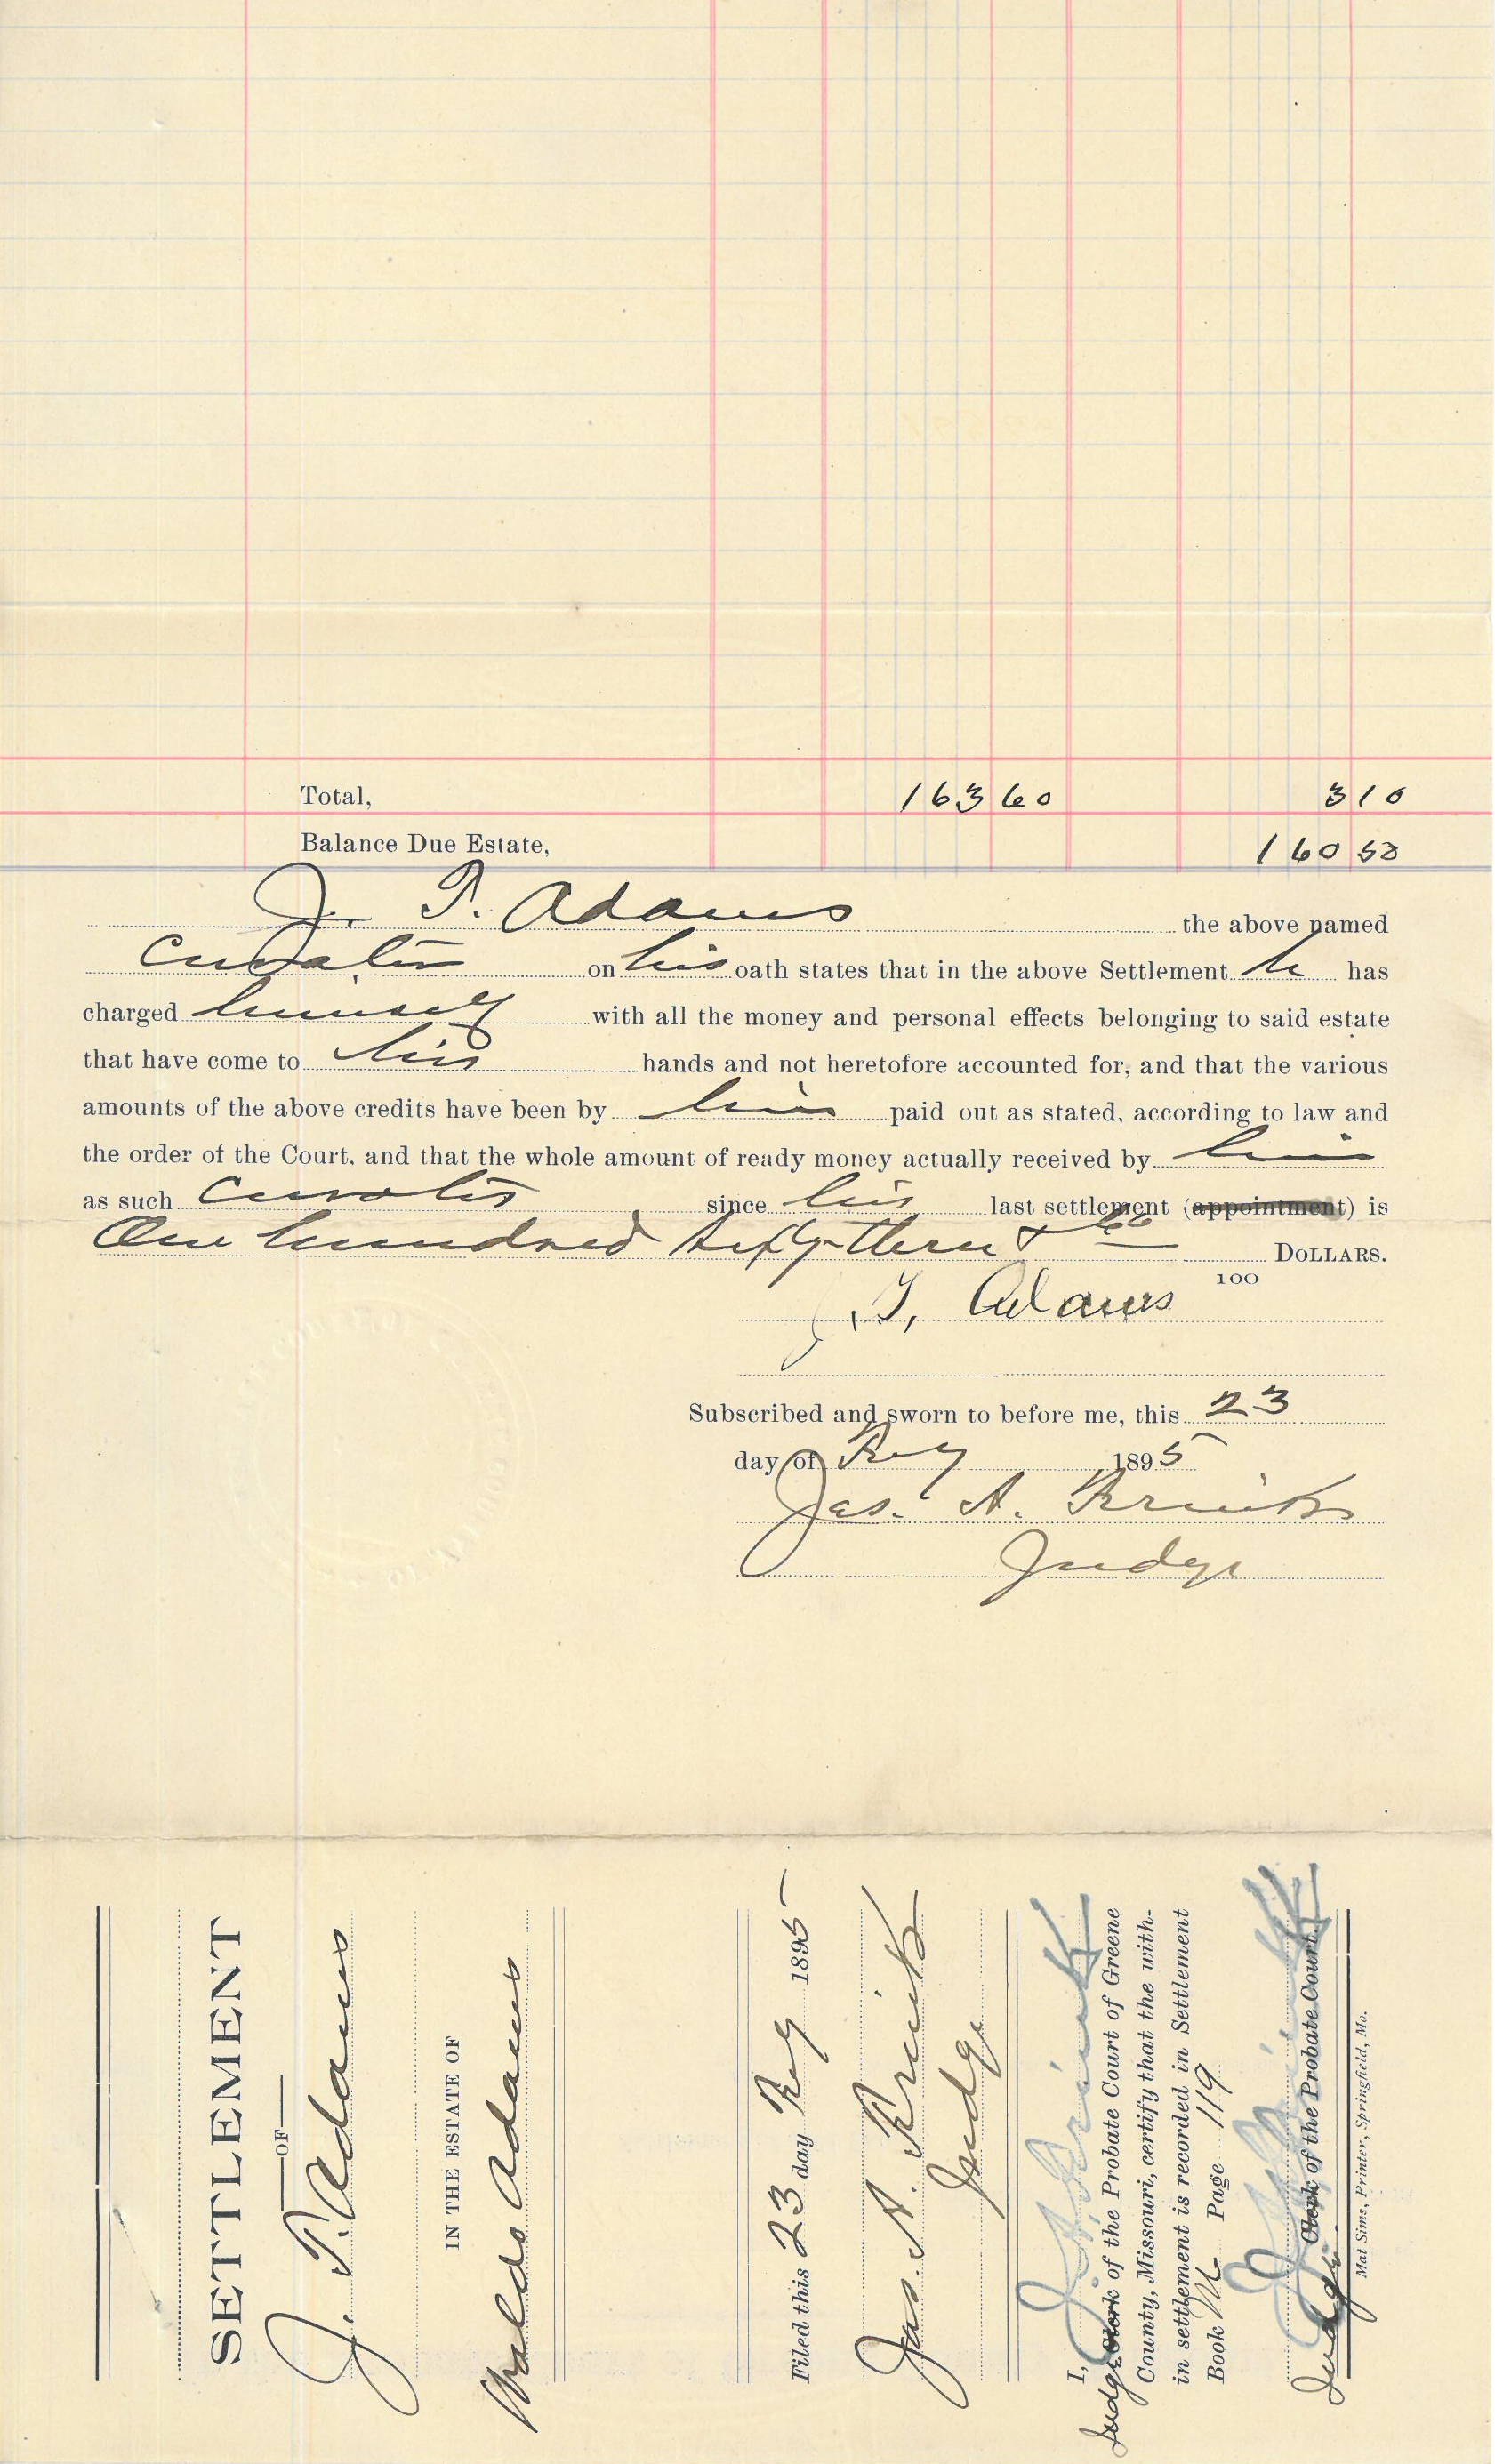 Total, 163 60 3 10
Balance Due Estate, 160 50
J. T. Adams the above named
Curator on his oath states that in the above Settlement he has
charged himself with all the money and personal effects belonging to said estate
that have come to his hands and not heretofore accounted for, and that the various
amounts of the above credits have been by him paid out as stated, according to law and
the order of the Court, and that the whole amount of ready money actually received by him
as such Curator since his last settlement (appointment) is
One hundred sixty-three & 60 DOLLARS.
100
J. T. Adams
Subscribed and sworn to before me, this 23
day of 1895
Jas. A.
Judge
SETTLEMENT
—OF—
J. T. Adams
IN THE ESTATE OF
Waldo Adams
Filed this 23 day 1895
Jas. A.
Judge
I, J. A.
Judge Clerk of the Probate Court of Greene
County, Missouri, certify that the with-
in settlement is recorded in Settlement
Book Page 119
Judge Clerk of the Probate Court.
Mat Sims, Printer, Springfield, Mo.